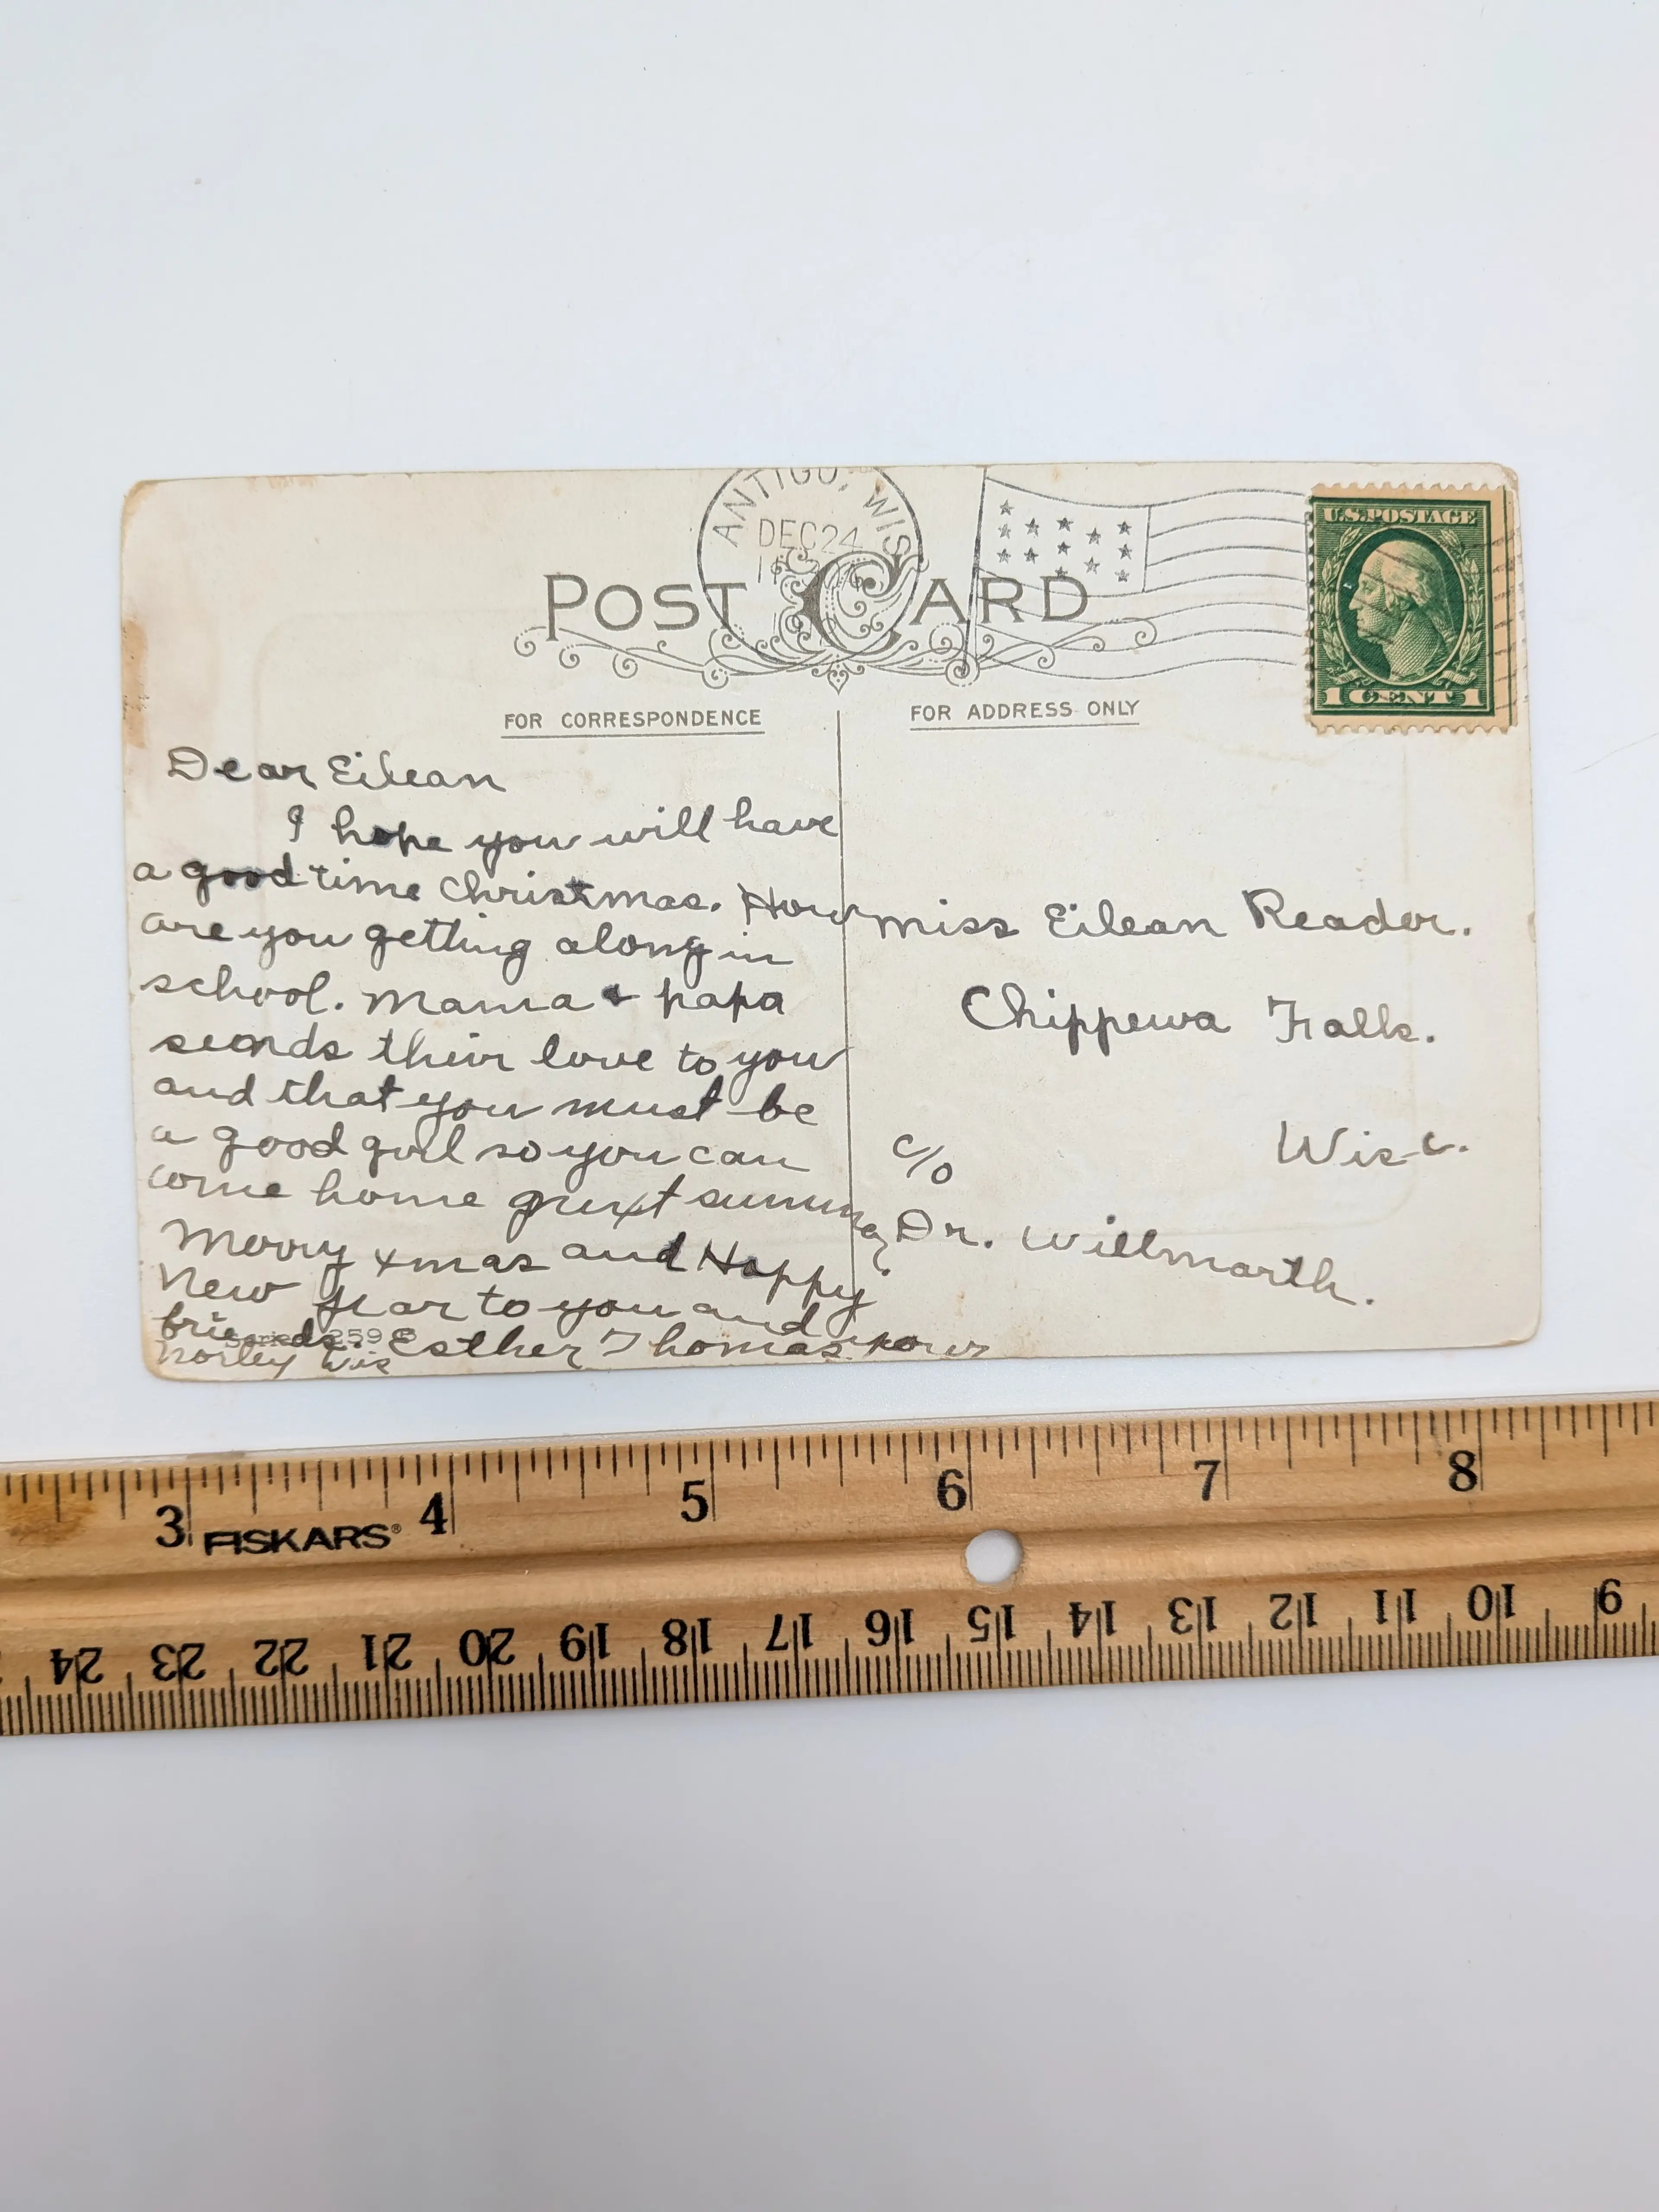 ANTIGO, WIS
DEC 24
U.S. POSTAGE
1 CENT 1
POST CARD
FOR CORRESPONDENCE
FOR ADDRESS ONLY
Dear Eilean
I hope you will have
a good time Christmas. How
are you getting along in
school. Mama & papa
sends their love to you
and that you must be
a good girl so you can
come home next summer
Merry Xmas and Happy
New Year to you and your
friends. Esther Thomas
Norley Wis
259
Miss Eilean Reader.
Chippewa Falls.
Wisc.
c/o
Dr. Willmarth.
3 4 5 6 7 8
FISKARS®
24 23 22 21 20 19 18 17 16 15 14 13 12 11 10 9